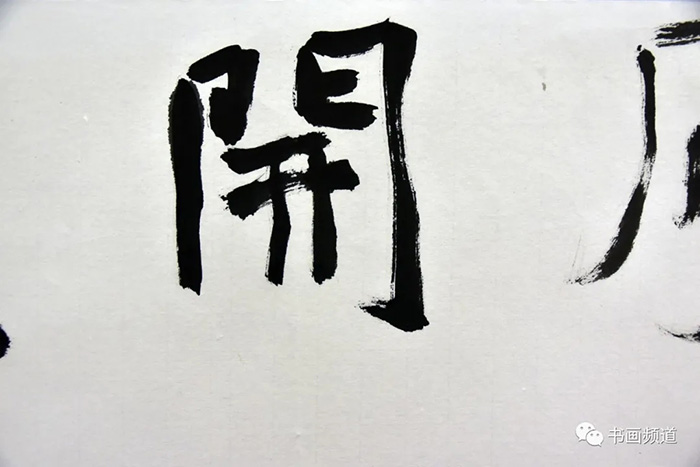 開
书画频道